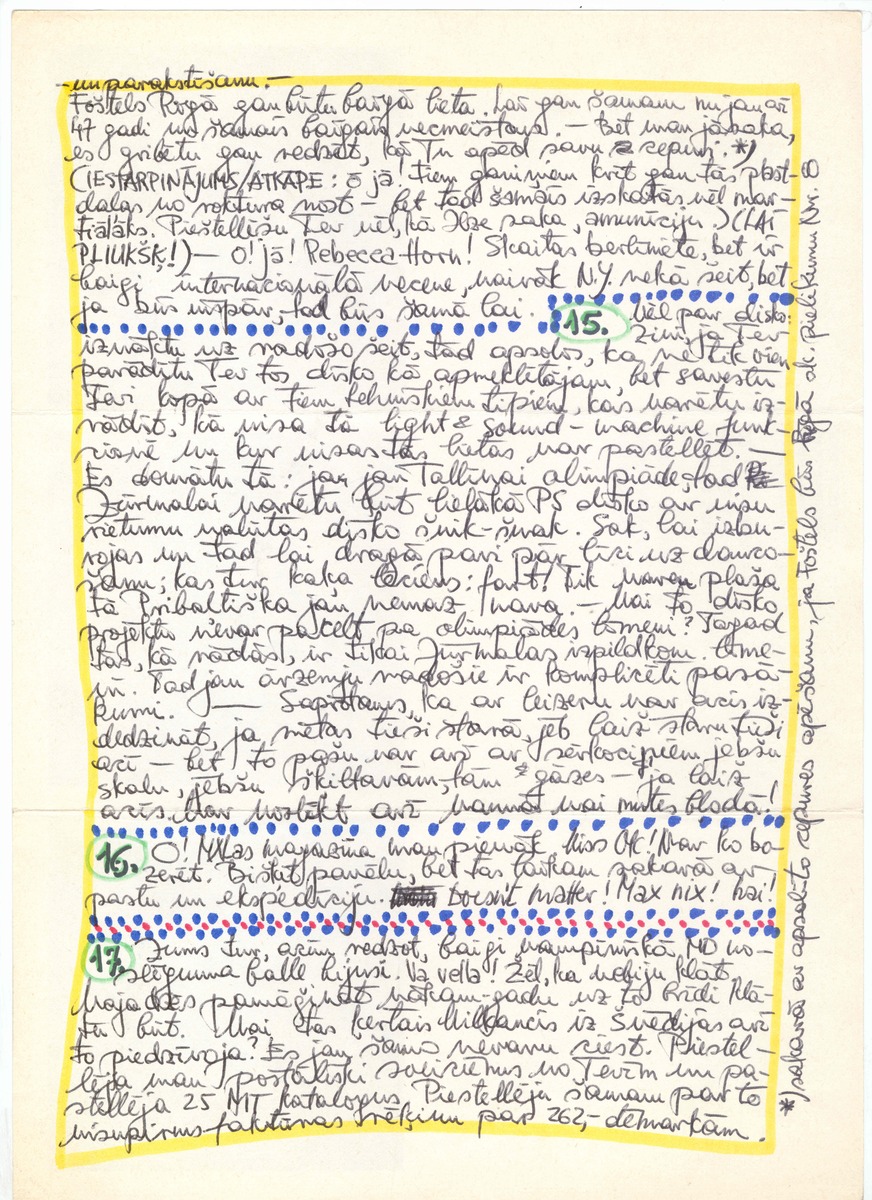 — un parakstīšanu. —
Foštels Rīgā gan būtu baigā lieta. Lai gan šamam nu jau arī
47 gadi un šamais baigais vecmeistars. — Bet man jāsaka,
es gribētu gan redzēt, kā Tu apēd savu cepuri. *)
(IESTARPINĀJUMS/ATKĀPE: ō jā! Tiem ganiņiem krīt gan tās plast-
daļas no roktura nost — bet tad šamais izskatās vēl mar-
tiālāks. Piestellēšu Tev vēl, kā Ilze saka, „amunīciju.) (LAI
PLIUKŠĶ!) — O! jā! Rebecca Horn! Skaitās berliniete, bet ir
baigi internacionālā vecene, vairāk N.Y. nekā šeit, bet
ja būs vispār, tad būs šamā lai.
15. Vēl par disko:
zini, ja Tev
iznāktu uz nadošo šeit, tad apsolos, ka ne tik vien
parādītu Tev tos disko kā apmeklētājam, bet savestu
Tevi kopā ar tiem tehniskiem tipiem, kas varētu iz-
rādīt, kā visa tā light & sound - machine funk-
cionē un kur visas tās lietas var pastellēt. —
Es domātu tā: ja jau Tallinai olimpiāde, tad
Jūrmalai varētu būt lielākā PS disko ar visu
rietumu valūtas disko šnik-šnak. Sak, lai izbu-
rojas un tad lai dragā pāri pār līci uz danco-
šanu; kas tur kaķa lēciens: fart! Tik varen plaša
tā Pribaltiška jau nemaz nava. — Vai to disko
projektu nevar pacelt pa olimpiādes līmeni? Tagad
tas, kā rādās, ir tikai Jūrmalas izpildkom. līme-
nī. Tad jau ārzemju nadošie ir komplicēti pasā-
kumi. — Saprotams, ka ar leizeru var acis iz-
dedzināt, ja mētas tieši starā, jeb laiž staru tieši
acī — bet to pašu var arī ar sērkociņiem jebšu
skalu, jebšu šķiltavām, tām gāzes — ja laiž
acīs. Var noslīkt arī vannā vai mutes bļodā!
16. O! MXLas magazīna man pienāk. Miss OK! Nav ko ba-
zerēt. Bišķīt pavēlu, bet tas laikam sakarā ar
pastu un ekspedīciju. Doesn't matter! Max nix! hai!
17. Jums tur, acīm redzot, baigi vampīriskā MD no-
slēguma balle bijusi. Vz vella! Žēl, ka nebiju klāt.
Vajadzēs pamēģināt nākam-gadu uz to brīdi klā-
tu būt. Vai tas ķertais Milkancis iz Švēdijas arī
to piedzīvoja? Es jau šamo nevaru ciest. Piestel-
lēja man postāliski sveicienus no Tevīm un pa-
stellēja 25 NIT katalogus. Piestellēju šamam par to
visupirms faktūras rēķinu par 262,- dēmarkām.
*) sakarā ar apsolīto cepures apēšanu, ja Foštels būs Rīgā sk. pielikumu Nr. 8